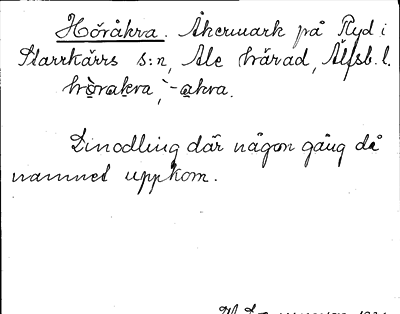 Höråkra. Åkermark på Ryd i
Starrkärrs s:n, Ale härad, Älfsb. l.
hòrakra, -akra.
Linodling där någon gång då
namnet uppkom.